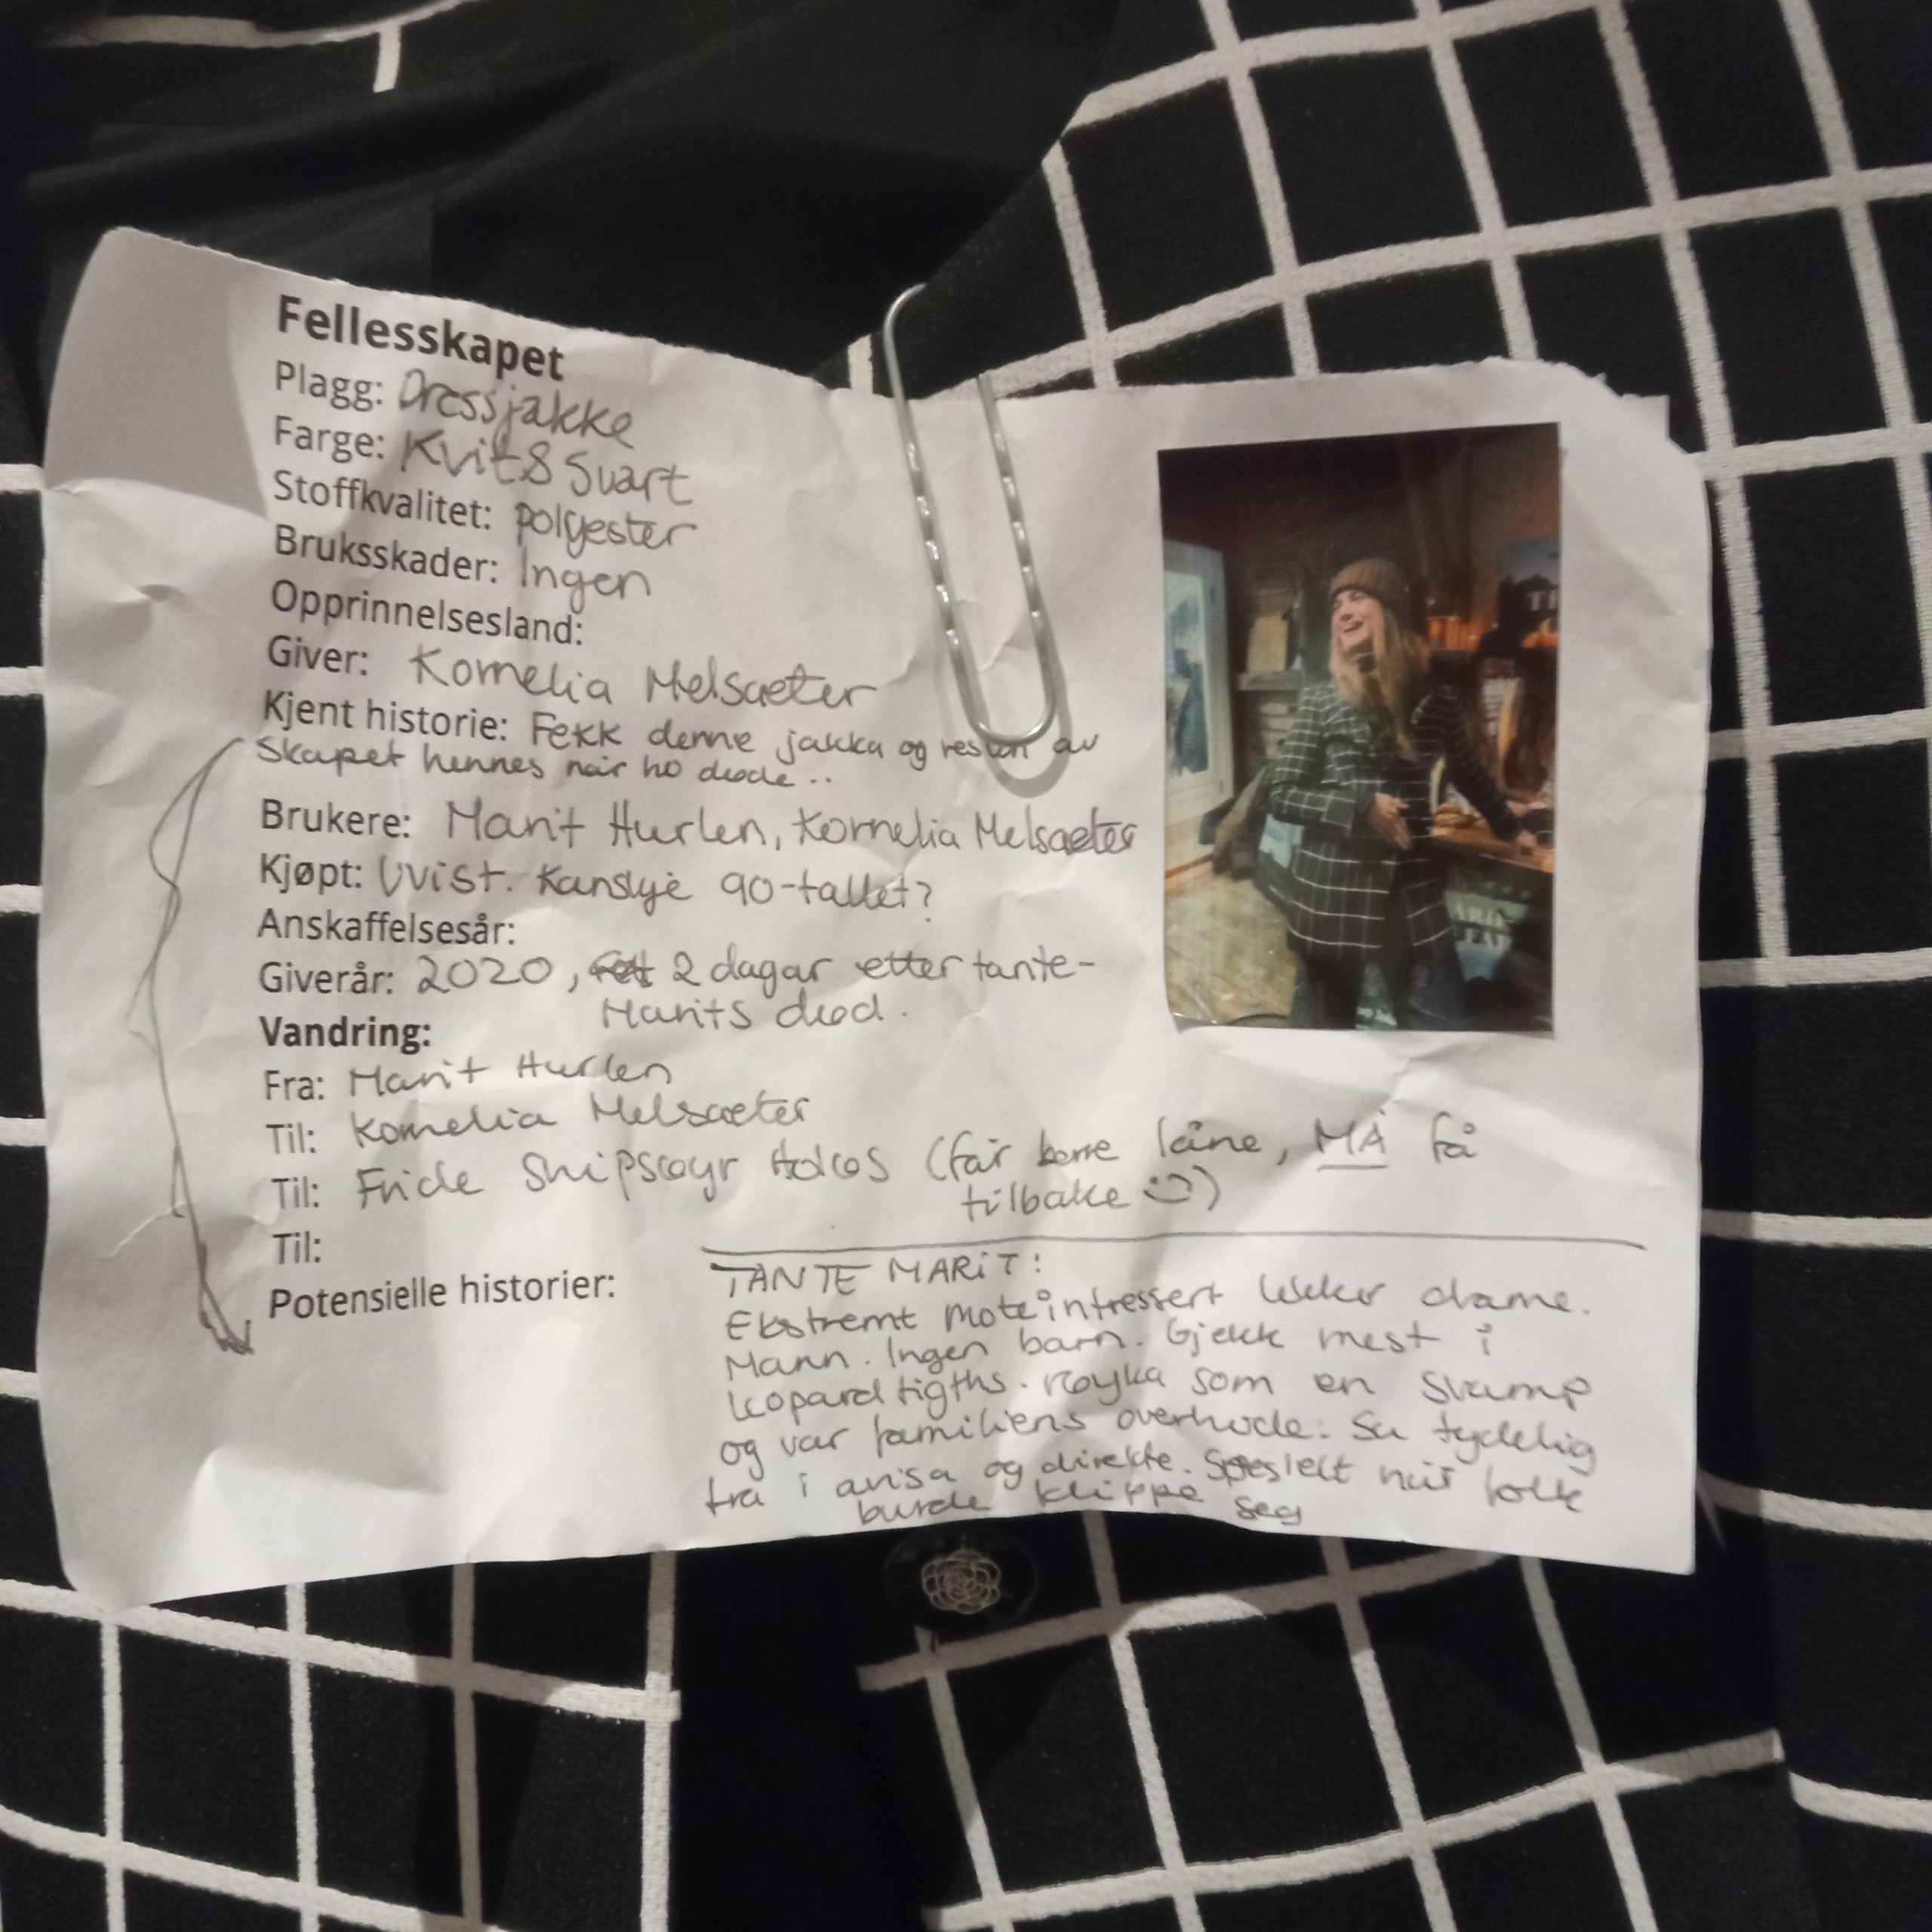 Fellesskapet
Plagg: Dressjakke
Farge: Kvit & Svart
Stoffkvalitet: polyester
Bruksskader: Ingen
Opprinnelsesland:
Giver: Kornelia Melsæter
Kjent historie: Fekk denne jakka og resten av
skapet hennes når ho døde..
Brukere: Marit Hurlen, Kornelia Melsæter
Kjøpt: Uvist. Kanskje 90-tallet?
Anskaffelsesår:
Giverår: 2020, 2 dagar etter tante-
Marits død.
Vandring:
Fra: Marit Hurlen
Til: Kornelia Melsæter
Til: Fride (får berre låne, MÅ få
tilbake :))
Til:
Potensielle historier:
TANTE MARiT:
Ekstremt moteintressert lekker dame.
Mann. Ingen barn. Gjekk mest i
leopard tigths. røyka som en svamp
og var familiens overhode. Sa tydelig
fra i avisa og direkte. Spesielt når folk
burde klippe seg